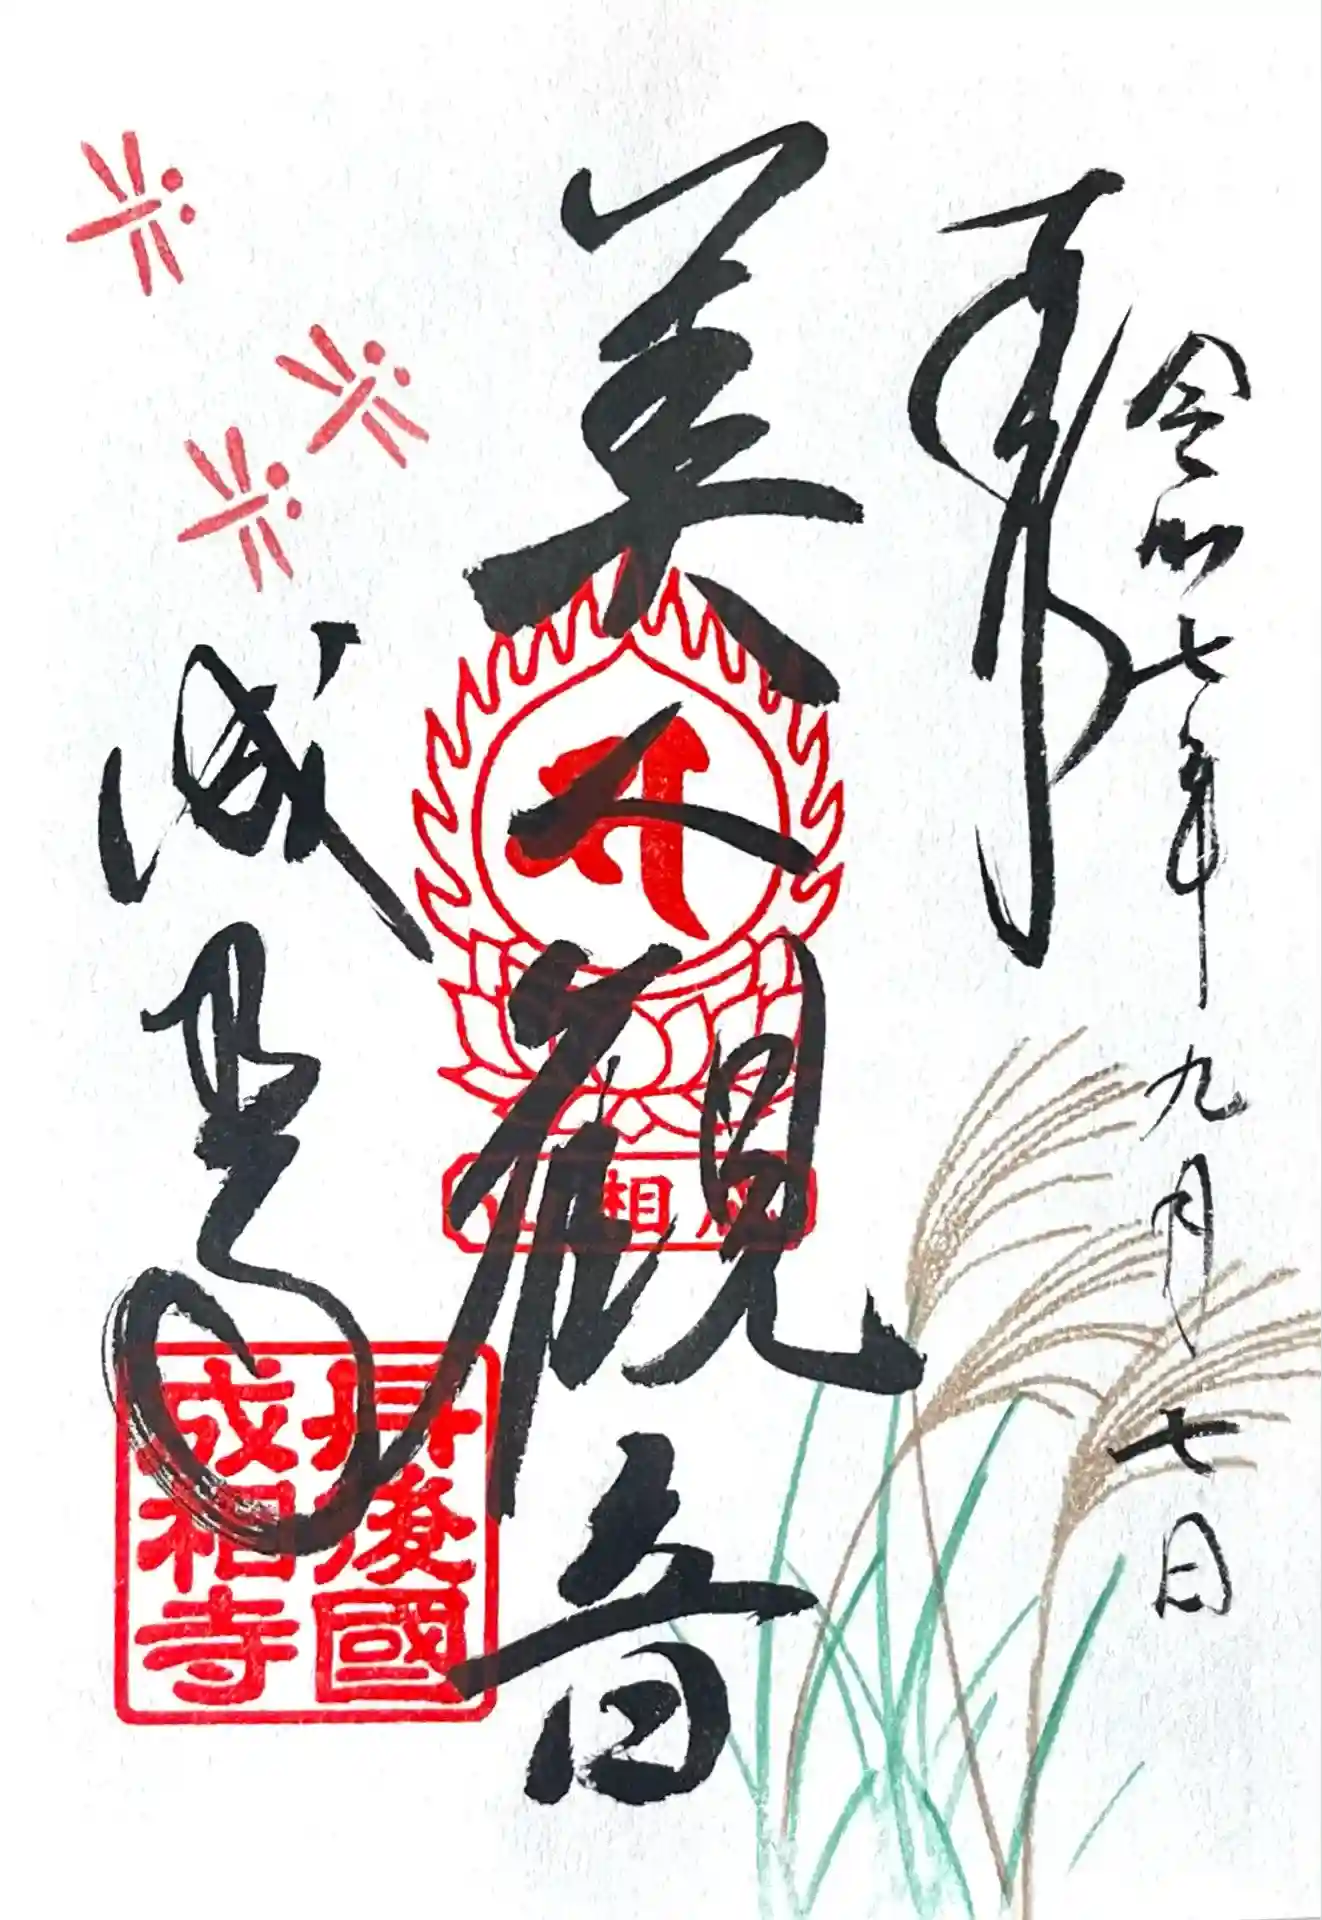 令和七年九月七日
拝
美人観音
成相山
成相寺
丹後國
成相寺